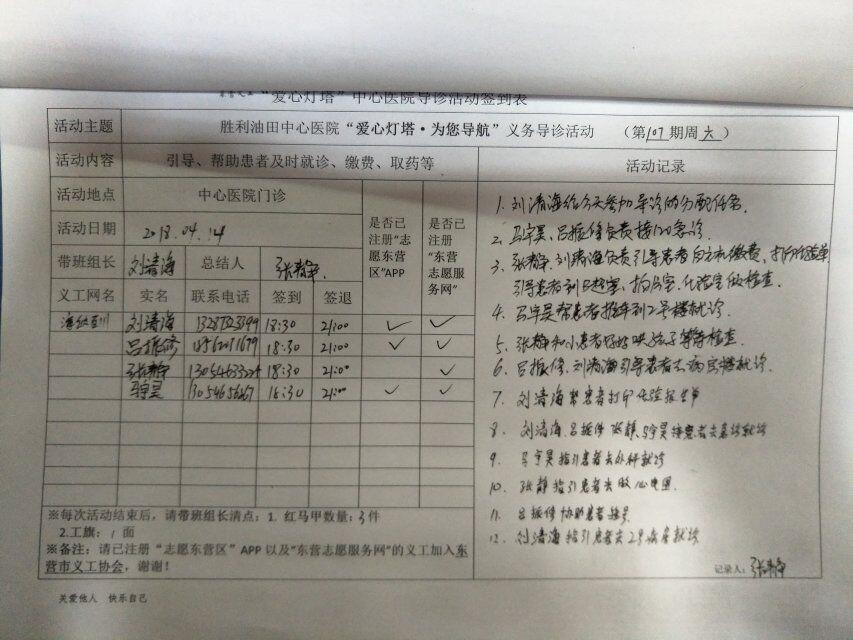 “爱心灯塔”中心医院导诊活动签到表
活动主题 胜利油田中心医院“爱心灯塔·为您导航”义务导诊活动 （第107期周六）
活动内容 引导、帮助患者及时就诊、缴费、取药等 活动记录
活动地点 中心医院门诊
活动日期 2018.04.14
是否已注册“志愿东营区”APP
是否已注册“东营志愿服务网”
带班组长 刘清海 总结人 张静
义工网名 实名 联系电话 签到 签退
海纳百川 刘清海 18:30 21:00 ✓ ✓
吕振修 18:30 21:00 ✓ ✓
张静 13054633224 18:30 21:00 ✓
马宇昊 18:30 21:00 ✓ ✓
※每次活动结束后，请带班组长清点：1. 红马甲数量：3件
2.工旗：1面
※备注：请已注册“志愿东营区”APP以及“东营志愿服务网”的义工加入东
营市义工协会，谢谢！
1. 刘清海给今天参加导诊的分配任务.
2. 马宇昊、吕振修负责接120急诊.
3. 张静、刘清海负责引导患者自主机缴费、打印
引导患者到B超室、拍片室、化验室做检查.
4. 马宇昊帮患者推车到2号楼就诊.
5. 张静和小患者玩好哄孩子等待检查.
6. 吕振修、刘清海引导患者去病房楼就诊.
7. 刘清海帮患者打印化验报告单
8. 刘清海、吕振修、张静、马宇昊接患者去急诊就诊
9. 马宇昊指引患者去外科就诊
10. 张静指引患者去做心电图.
11. 吕振修协助患者挂号
12. 刘清海指引患者去2号病房就诊
记录人：张静
关爱他人 快乐自己